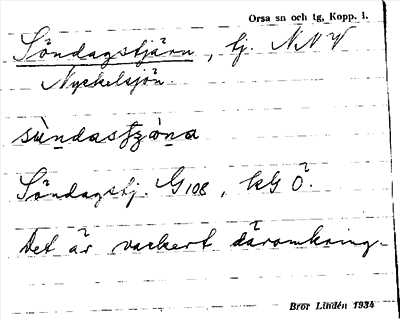 Orsa sn och tg, Kopp. l.
Söndagstjärn, tj. NNV
Nyckelsjön.
Söndagstj. G108, kG Ö?.
Det är vackert däromkring.
Bror Lindén 1934